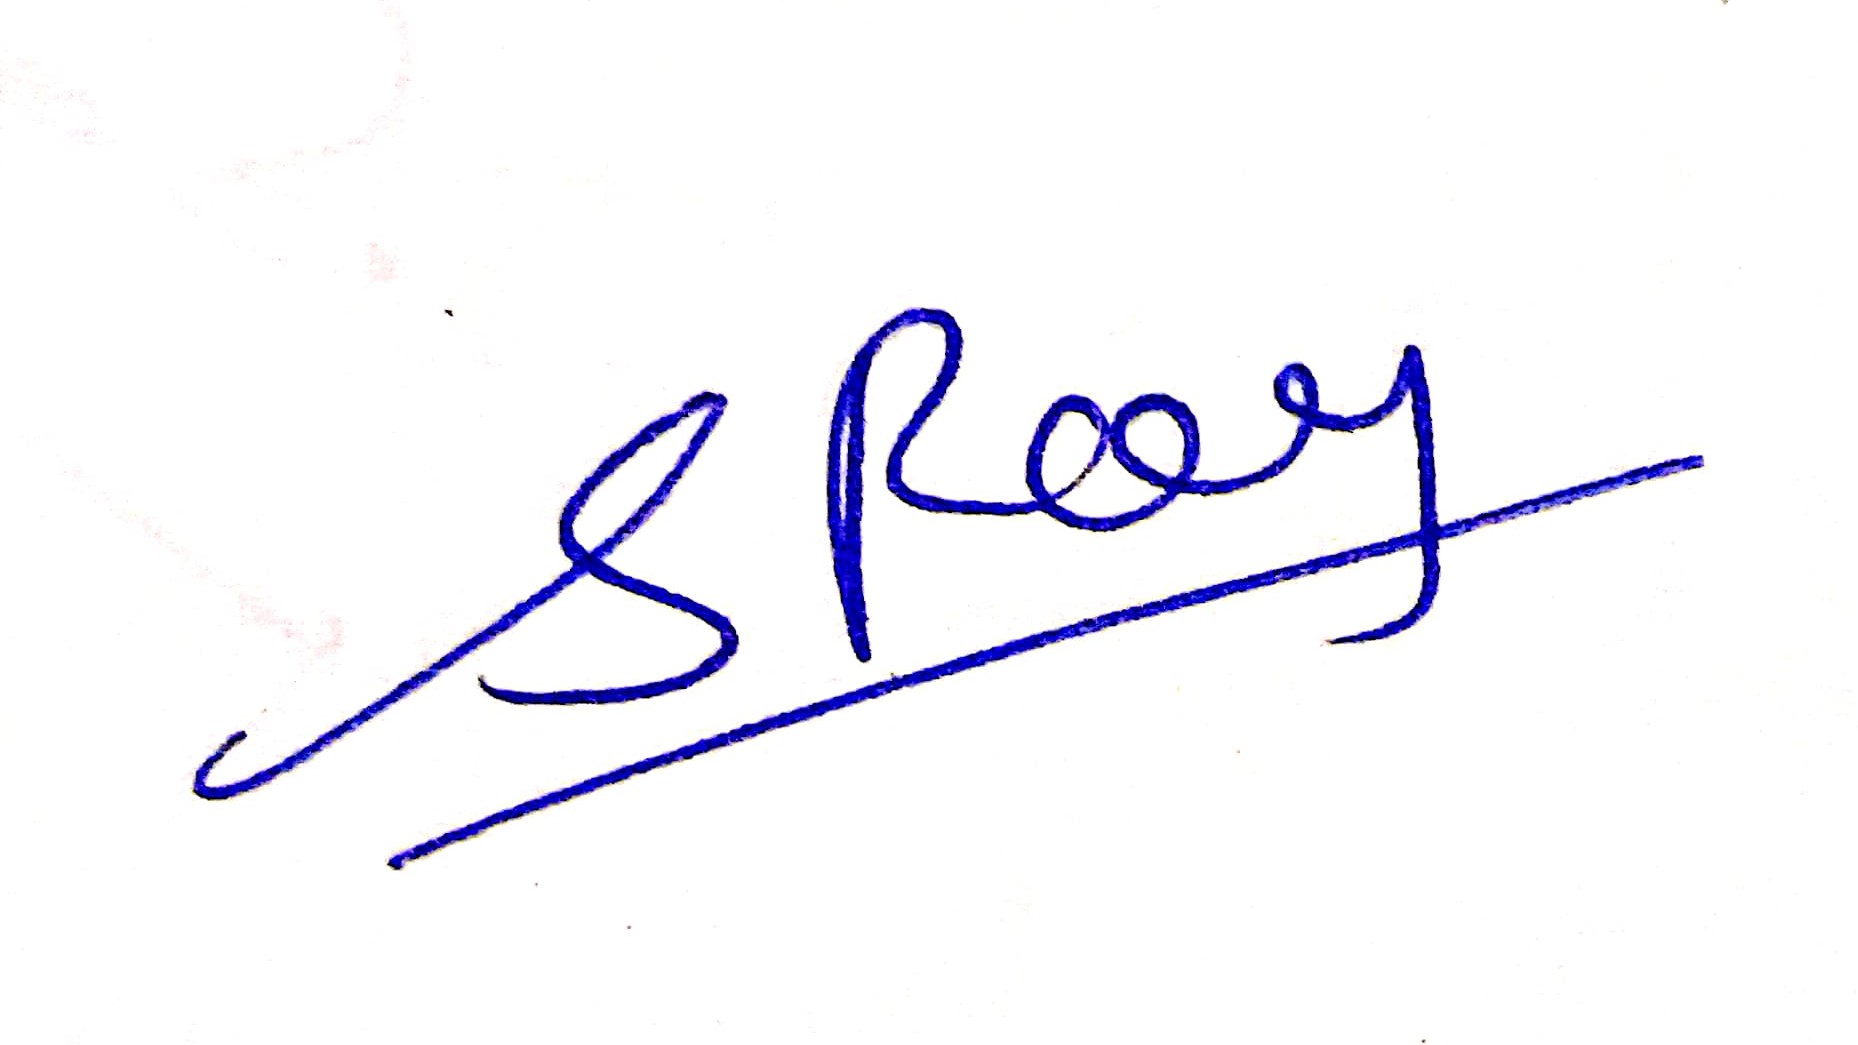 S Roy